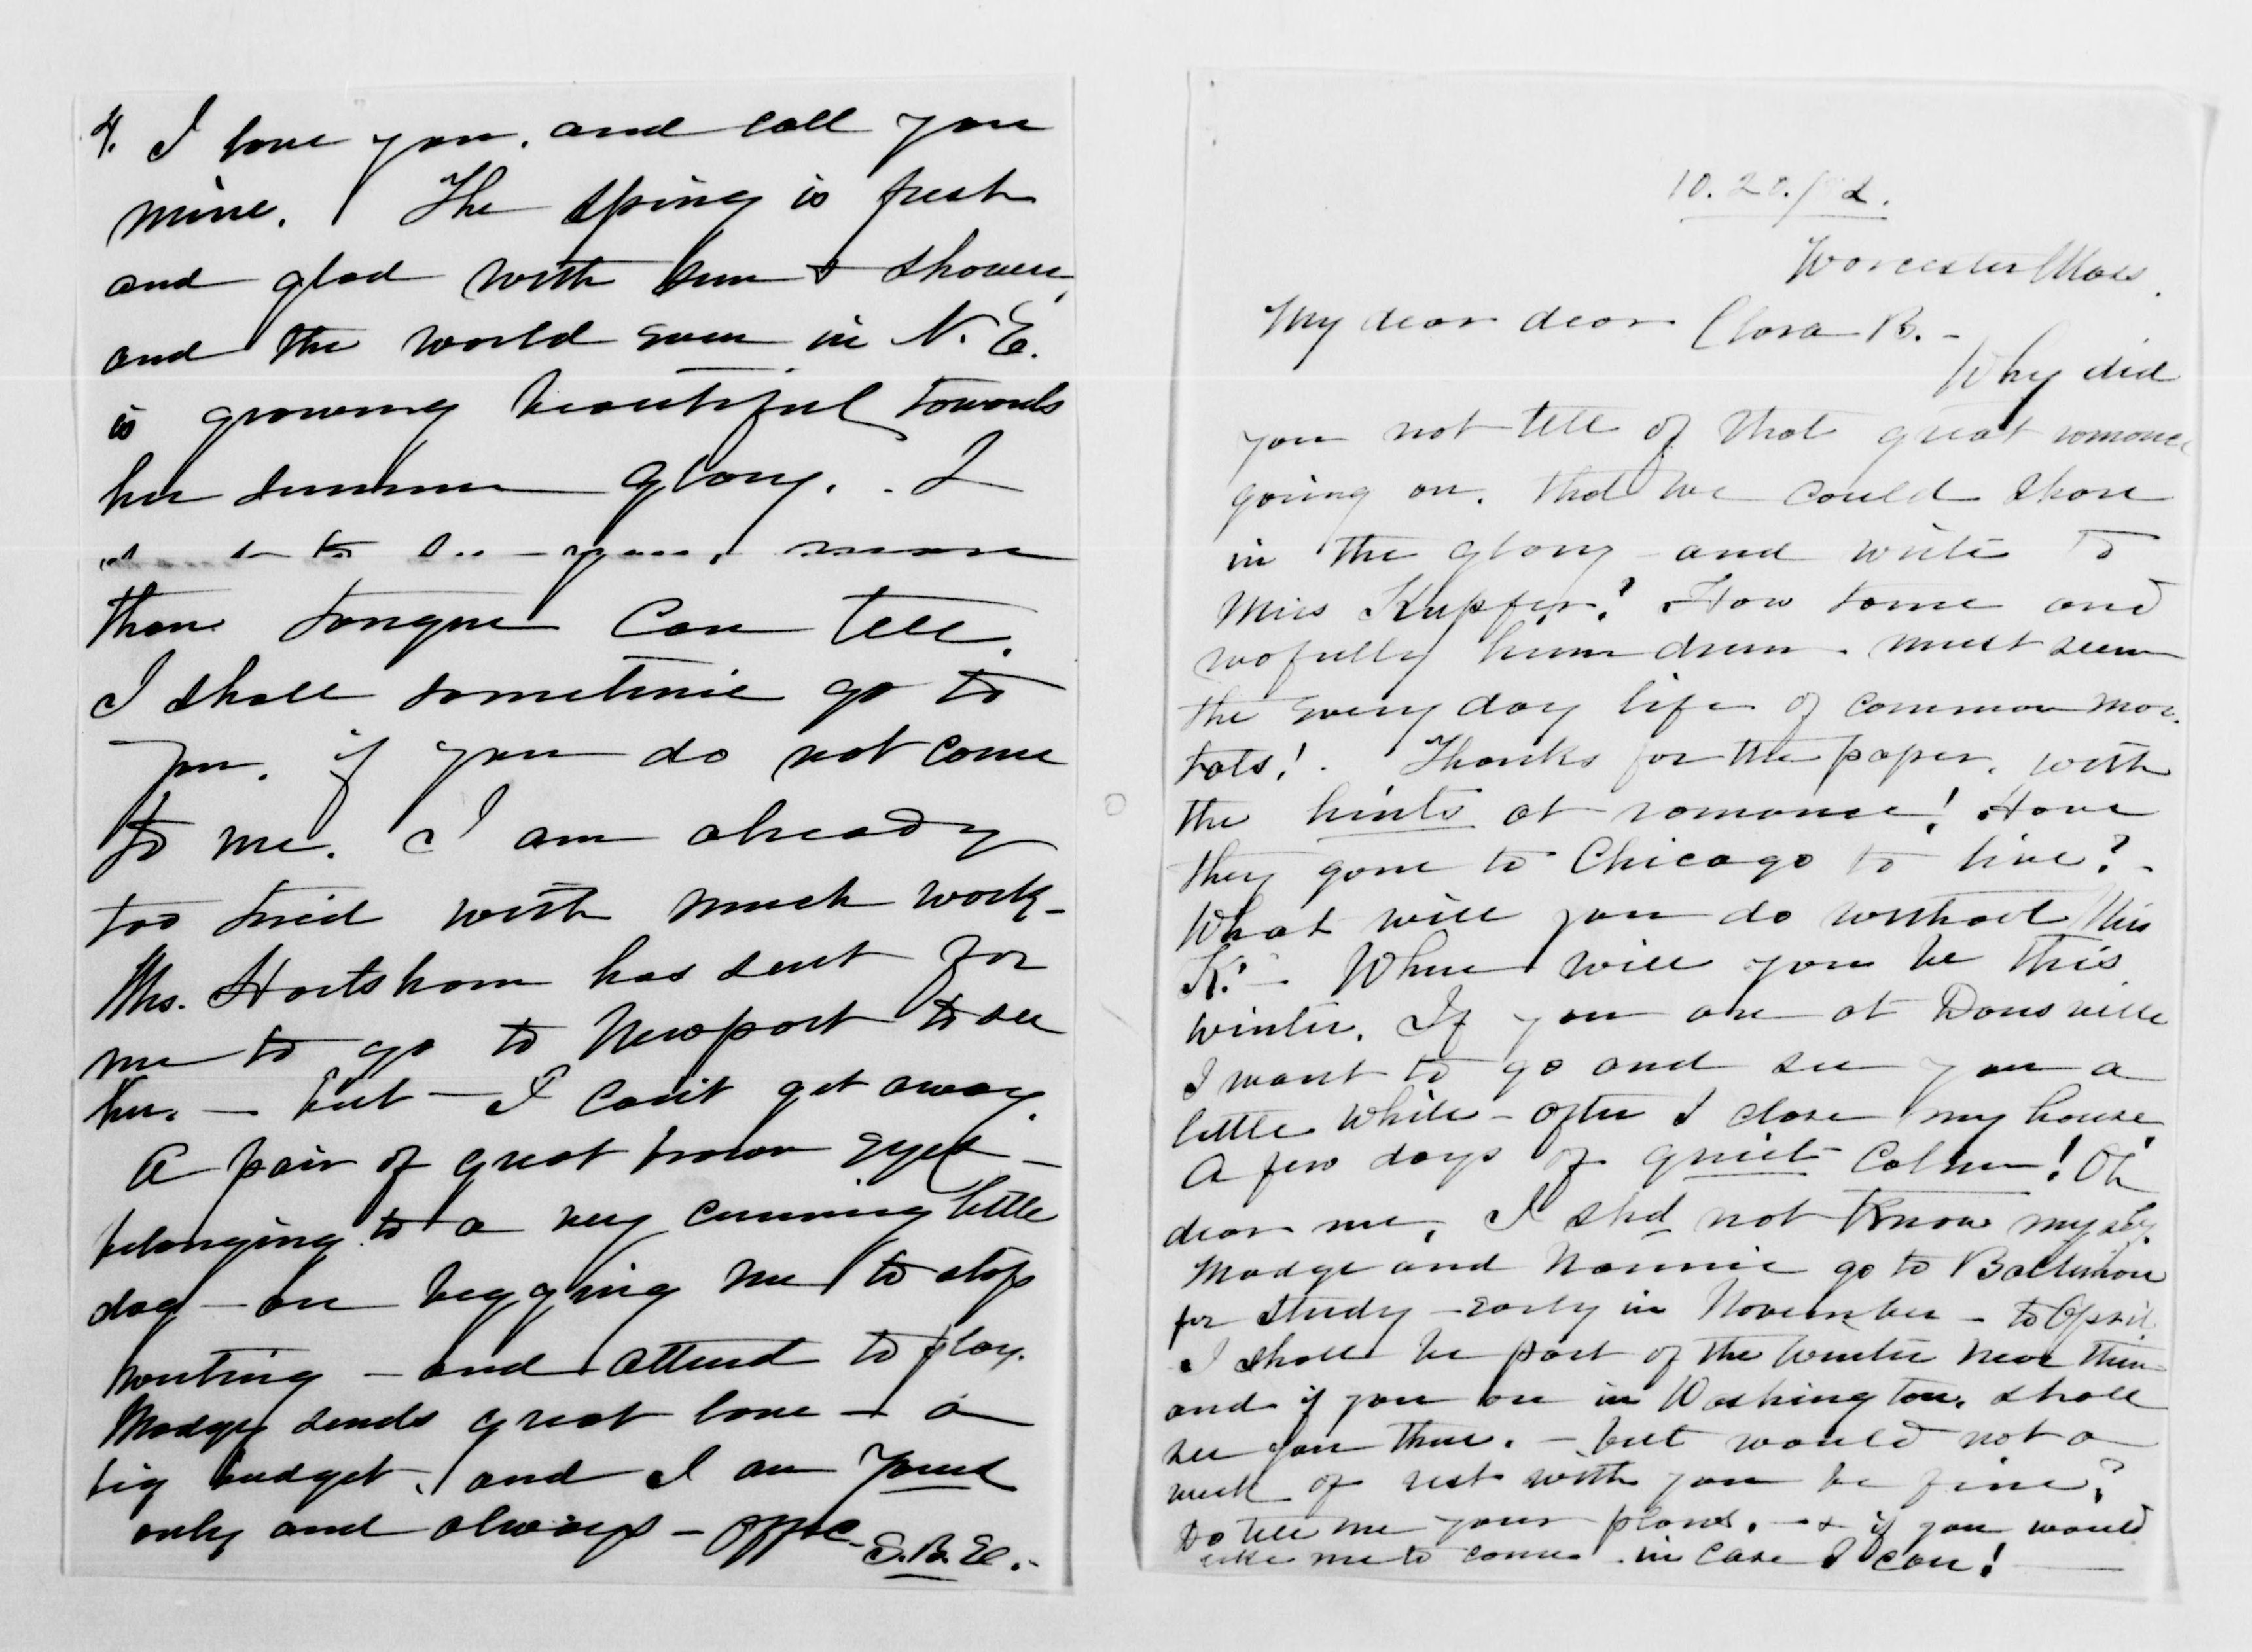 4. I love you, and call you
mine. The Spring is fresh
and glad with sun & shower,
and the world even in N. E.
is growing beautiful towards
her summer glory. I
to see you, more
than tongue can tell.
I shall sometime go to
you, if you do not come
to me. I am already
too tired with much work -
Mrs. Hartshorn has sent for
me to go to Newport to see
her. — but — I can't get away.
A pair of great brown eyes —
belonging to a very cunning little
dog — are begging me to stop
writing — and attend to play.
Madge sends great love — a
big budget, and I am yours
only and always — affec.
S. B. E. -
10. 20. / 2.
Worcester Mass.
My dear dear Clara B. -
Why did
you not tell of that great romance
going on, that we could share
in the glory - and write to
Miss Kupfer? How tame and
wofully hum drum must seem
the every day life of common mor-
tals! Thanks for the paper, with
the hints at romance! Have
they gone to Chicago to live? -
What will you do without Miss
K? - Where will you be this
winter. If you are at Dansville
I want to go and see you a
little while - after I close my house.
A few days of quiet calm! Oh
dear me, I shd not know myself.
Madge and Nannie go to Baltimore
for study - early in November - to April.
I shall be part of the winter near them
and if you are in Washington, shall
see you there. - but would not a
week of rest with you be fine?
Do tell me your plans, - & if you would
like me to come in case I can! —